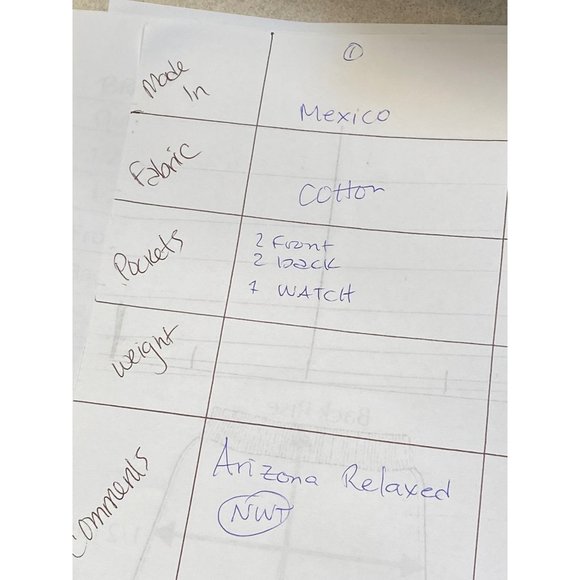 ①
Made In
Mexico
Fabric
Cotton
Pockets
2 Front
2 back
1 WATCH
weight
Comments
Arizona Relaxed
NWT
Back Rise